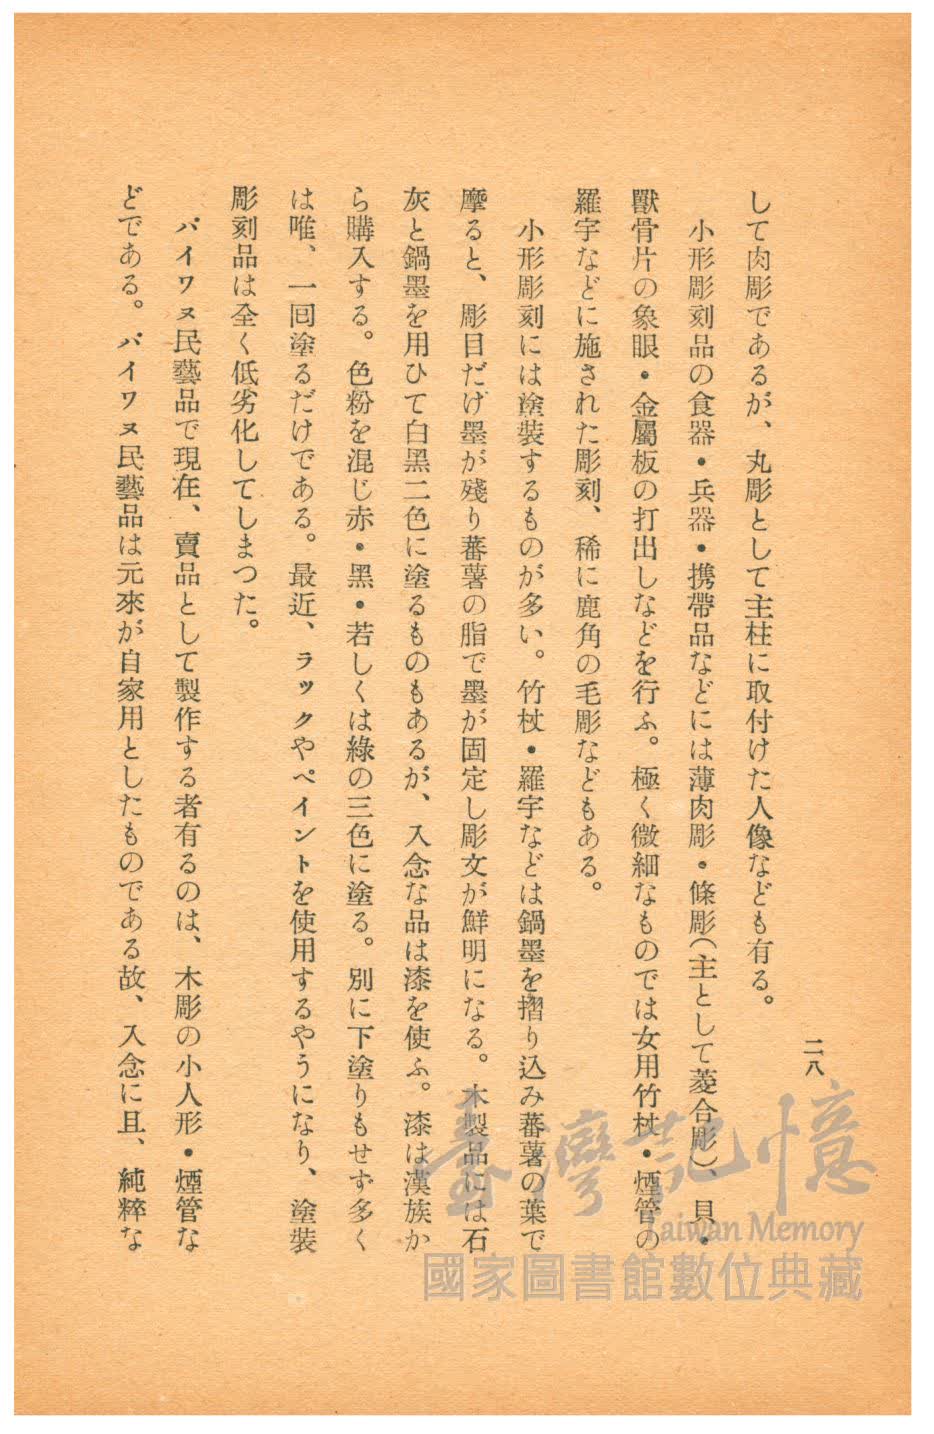 二八
して肉彫であるが、丸彫として主柱に取付けた人像なども有る。
小形彫刻品の食器・兵器・携帶品などには薄肉彫・條彫(主として菱合彫)、貝・
獸骨片の象眼・金屬板の打出しなどを行ふ。極く微細なものでは女用竹杖・煙管の
羅宇などに施された彫刻、稀に鹿角の毛彫などもある。
小形彫刻には塗裝するものが多い。竹杖・羅宇などは鍋墨を摺り込み蕃薯の葉で
摩ると、彫目だけ墨が殘り蕃薯の脂で墨が固定し彫文が鮮明になる。木製品には石
灰と鍋墨を用ひて白黑二色に塗るものもあるが、入念な品は漆を使ふ。漆は漢族か
ら購入する。色粉を混じ赤・黑・若しくは綠の三色に塗る。別に下塗りもせず多く
は唯、一回塗るだけである。最近、ラックやペイントを使用するやうになり、塗裝
彫刻品は全く低劣化してしまつた。
パイワヌ民藝品で現在、賣品として製作する者有るのは、木彫の小人形・煙管な
どである。パイワヌ民藝品は元來が自家用としたものである故、入念に且、純粹な
臺灣記憶
Taiwan Memory
國家圖書館數位典藏